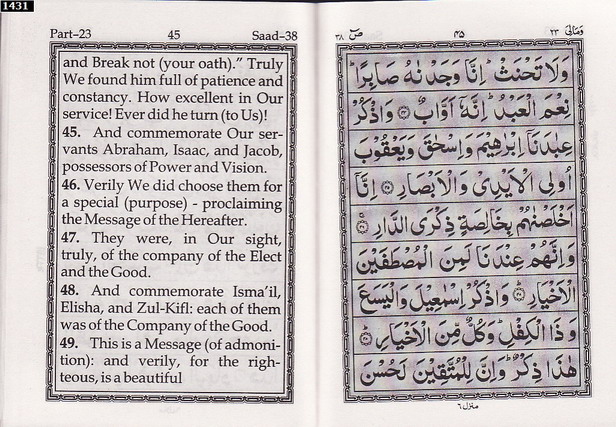 1431
Part–23 45 Saad–38
and Break not (your oath)." Truly
We found him full of patience and
constancy. How excellent in Our
service! Ever did he turn (to Us)!
45. And commemorate Our ser-
vants Abraham, Isaac, and Jacob,
possessors of Power and Vision.
46. Verily We did choose them for
a special (purpose) - proclaiming
the Message of the Hereafter.
47. They were, in Our sight,
truly, of the company of the Elect
and the Good.
48. And commemorate Isma'il,
Elisha, and Zul-Kifl: each of them
was of the Company of the Good.
49. This is a Message (of admoni-
tion): and verily, for the righ-
teous, is a beautiful
صٓ ٣٨ ٤٥ وَمَالِیَ ٢٣
وَلَا تَحْنَثْ ؕ اِنَّا وَجَدْنٰهُ صَابِرًا ؕ
نِعْمَ الْعَبْدُ ؕ اِنَّهٗۤ اَوَّابٌ ﴿٤٤﴾ وَاذْكُرْ
عِبٰدَنَاۤ اِبْرٰهِیْمَ وَاِسْحٰقَ وَیَعْقُوْبَ
اُولِی الْاَیْدِیْ وَالْاَبْصَارِ ﴿٤٥﴾ اِنَّاۤ
اَخْلَصْنٰهُمْ بِخَالِصَةٍ ذِكْرَی الدَّارِ ﴿٤٦﴾
وَاِنَّهُمْ عِنْدَنَا لَمِنَ الْمُصْطَفَیْنَ
الْاَخْیَارِ ﴿٤٧﴾ وَاذْكُرْ اِسْمٰعِیْلَ وَالْیَسَعَ
وَذَا الْكِفْلِ ؕ وَكُلٌّ مِّنَ الْاَخْیَارِ ﴿٤٨﴾
هٰذَا ذِكْرٌ ؕ وَاِنَّ لِلْمُتَّقِیْنَ لَحُسْنَ
منزل ٦